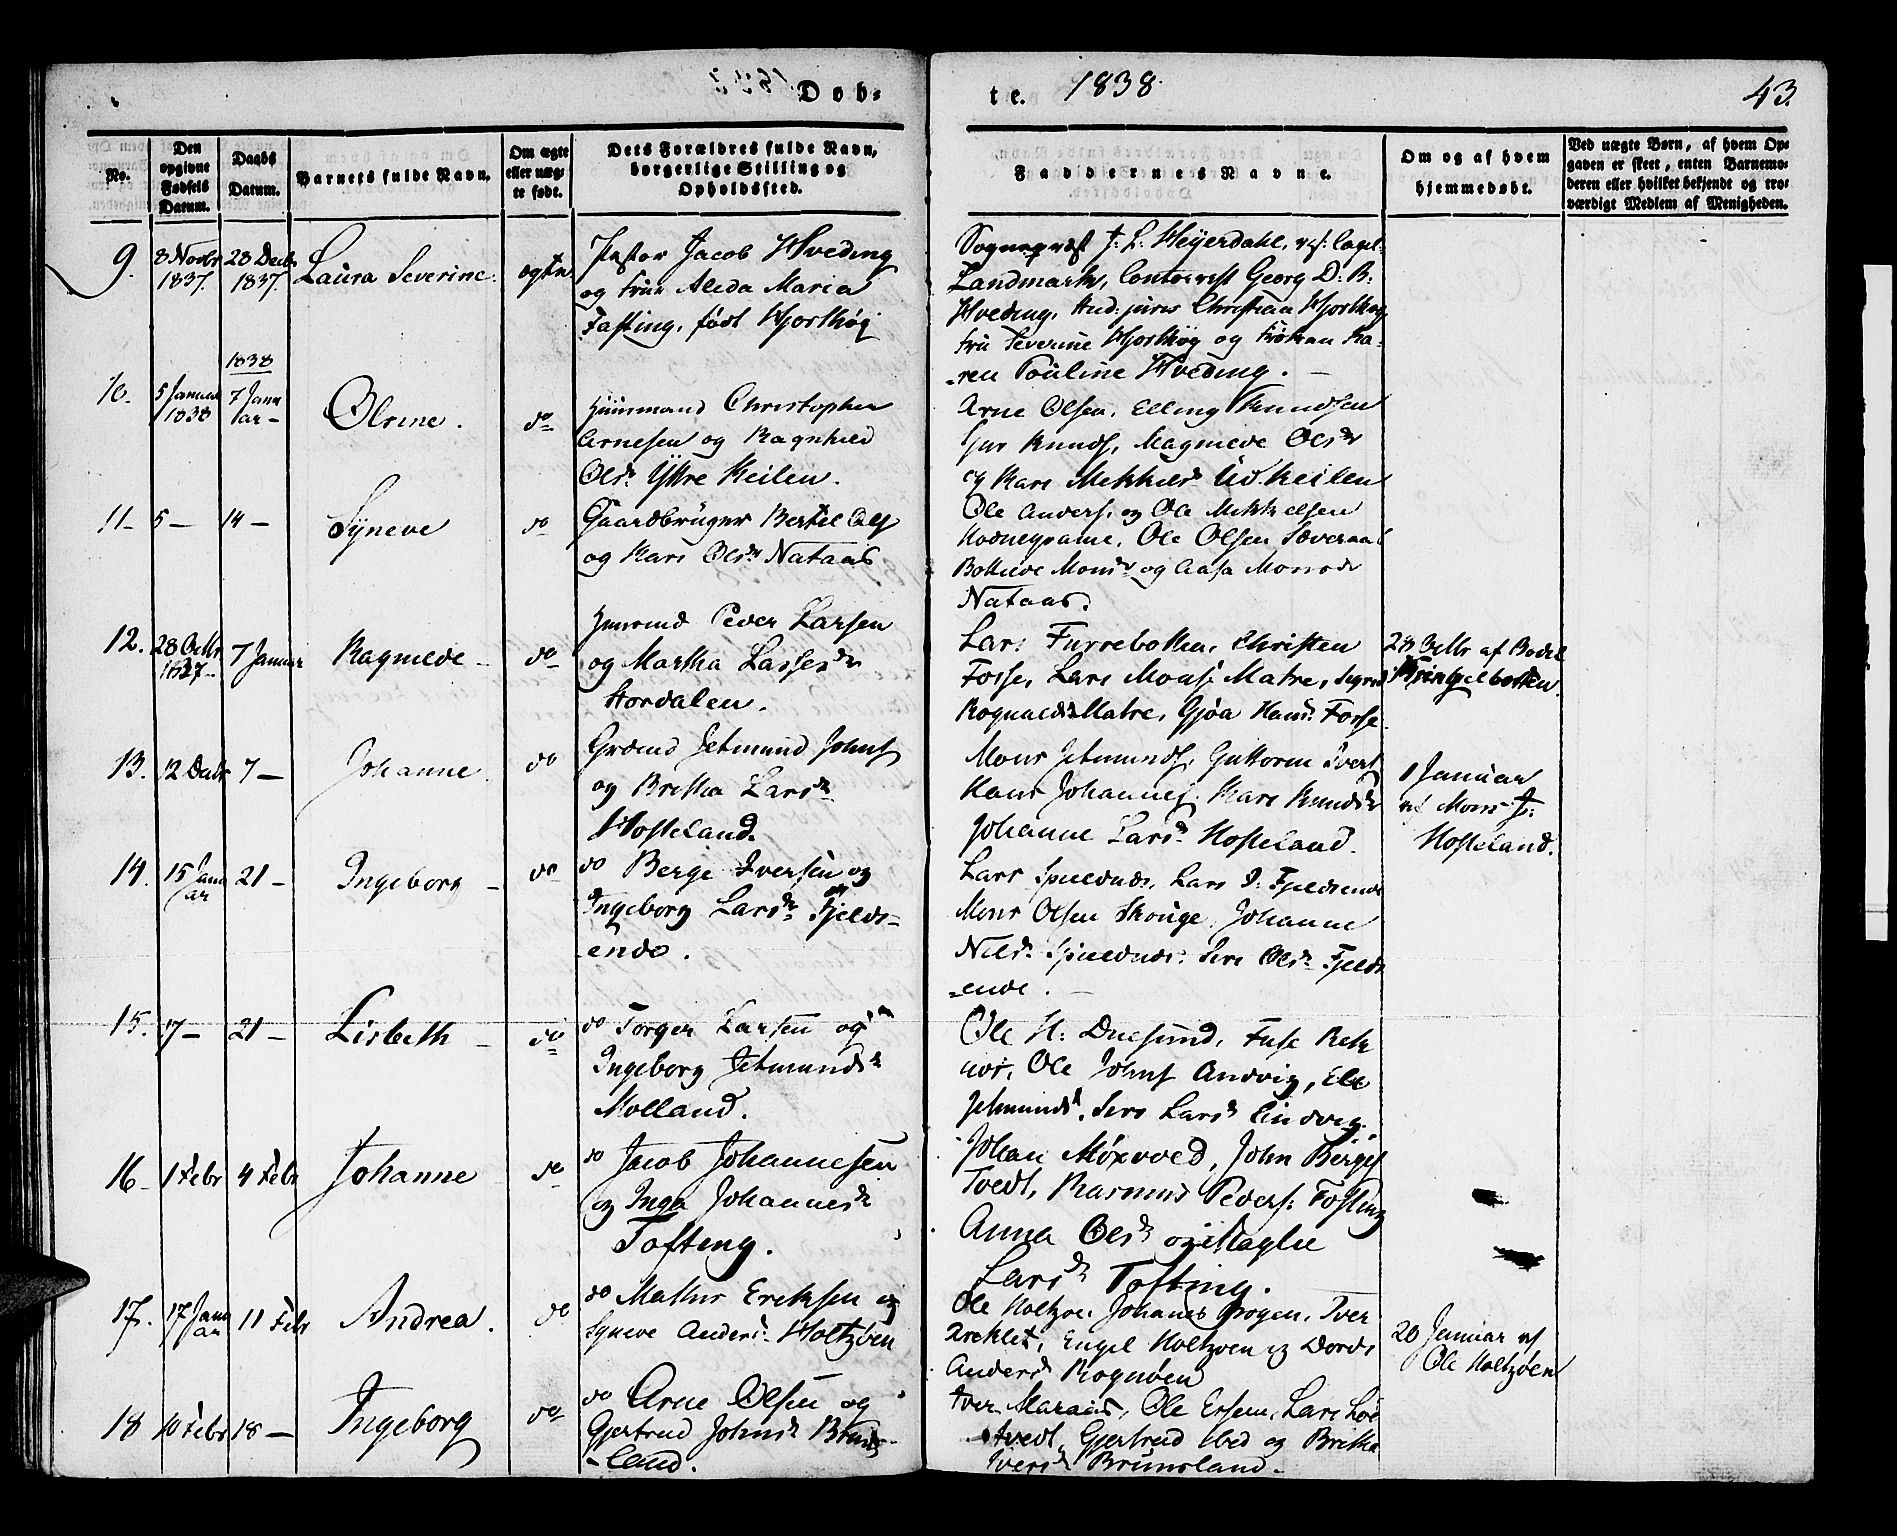 Døb-
te. 1838. 43.
No.
Den opgivne Fødsels Datum.
Daabs Datum.
Barnets fulde Navn.
Om ægte eller uægte født.
Dets Forældres fulde Navn, borgerlige Stilling og Opholdssted.
Faddernes Navne.
Om og af hvem hjemmedøbt.
Ved uægte Børn, af hvem Opgaven er skeet, enten Barnemoderen eller hvilket bekjendt og troværdigt Medlem af Menigheden.
9. 3 Novbr 1837. 28 Decbr 1837. Laura Severine. ægte
Pastor Jacob Hveding
og Frue Aleda Maria
Tafting, født Hjorthøy
Sogneprest L. Heyerdahl,
Landmark, Georg D. B.
Hveding, Christian Hjorthøy
Fru Severine Hjorthøy og Ka-
-ren Pouline Hveding.
10. 5 Januar 1838 1838 7 Januar Olrine. do
Huusmand Christopher
Arnesen og Ragnhild
Olsdr Yttre Keilen.
Arne Olsen, Elling Knudsen
Knuds, Magnilde Olsdr
og Kari Keilen
11 5 14 Syneve do
Gaardbruger Bertel Ols
og Kari Olsdr Nataas
Ole Anders. og Ole Mikkelsen
Ole Olsen
Monsdr og Aasa Monsdr
Nataas.
12. 28 Octbr 1837 7 Januar Ragnilde do
Huusmd Peder Larsen
og Martha Lassesdr
Stordalen.
Lars Furrebotten, Christen
Fosse, Lars Mons. Matre, Sigrid
Matre, Gjøa Hansd. Fosse
28 Octbr af Bodil
Kringlebotten.
13. 12 Decbr 7 Johanne. do
Grdmd Jetmund Johns
og Britha Larsdr
Hosteland.
Mons Jetmunds, Guttorm Ivers
Hans Johannes, Kari Knudsdr
Johanne Larsdr Hosteland.
1 Januar
af Mons J:
Hosteland.
14. 15 Januar 21 Ingeborg do
do Berge Iversen og
Ingeborg Larsdr Fjelds-
ende.
Lars Spieldnæs, Lars I. Fjeldsende
Mons Olsen Skouge, Johanne
Nilsdr Spieldnæs, Siri Olsdr Fjelds
-ende.
15. 17 21 Lisbeth do
do Torger Larsen og
Ingeborg Jetmundsdr
Molland.
Ole H: Duesund, Fuse
Ole Johns Andvig,
Jetmundsd, Siri Larsdr
16 1 Febr 4 Febr Johanne do
do Jacob Johannesen
og Inga Johannesdr
Tofting.
Johan Møxvoed, John Berges
Tvedt, Rasmus Peders: Tofting
Anna Olsdr og Magle
Larsdr Tofting.
17. 17 Januar 11 Febr Andrea. do
do Mathis Eriksen og
Syneve Andersdr Holtzøen
Ole Holtzøen, Johannes Iver
Engel Holtzøen og Dordi
Andersd Rognøen
20 Januar af
Ole Holtzøen
18 10 Febr 18 Ingeborg do
do Arne Olsen og
Gjertrud Johnsdr Bruns-
-land.
Iver Maraas, Ole Lars
-tvedt, Gjertrud ibid og Britha
Iversdr Brunsland.